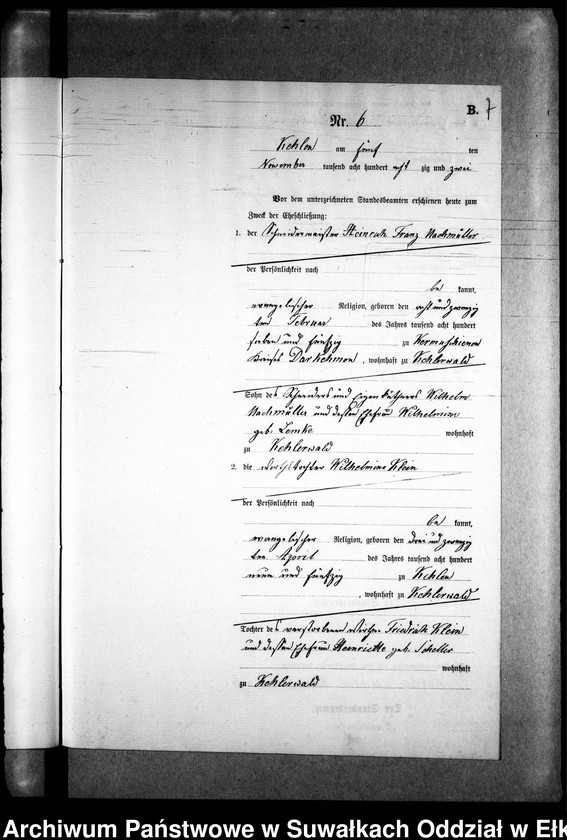 B. 7
Nr. 6
Kehlen am fünf ten
November tausend acht hundert acht zig und zwei
Vor dem unterzeichneten Standesbeamten erschienen heute zum
Zweck der Eheschließung:
1. der Schneidermeister Heinrich Franz Nachmüller
der Persönlichkeit nach
be kannt,
evangelischer Religion, geboren den acht und zwanzig
ten Februar des Jahres tausend acht hundert
sieben und fünfzig zu
Kreises Darkehmen, wohnhaft zu Kehlerwald
Sohn des Schneiders und Eigenkäthners Wilhelm
Nachmüller und dessen Ehefrau Wilhelmine
geb. Lemke wohnhaft
zu Kehlerwald
2. die Wirthstochter Wilhelmine Klein
der Persönlichkeit nach
be kannt,
evangelischer Religion, geboren den drei und zwanzig
ten April des Jahres tausend acht hundert
neun und fünfzig zu Kehlen
, wohnhaft zu Kehlerwald
Tochter des verstorbenen Wirths Friedrich Klein
und dessen Ehefrau Henriette geb. Scheller
wohnhaft
zu Kehlerwald
Archiwum Państwowe w Suwałkach Oddział w Ełk